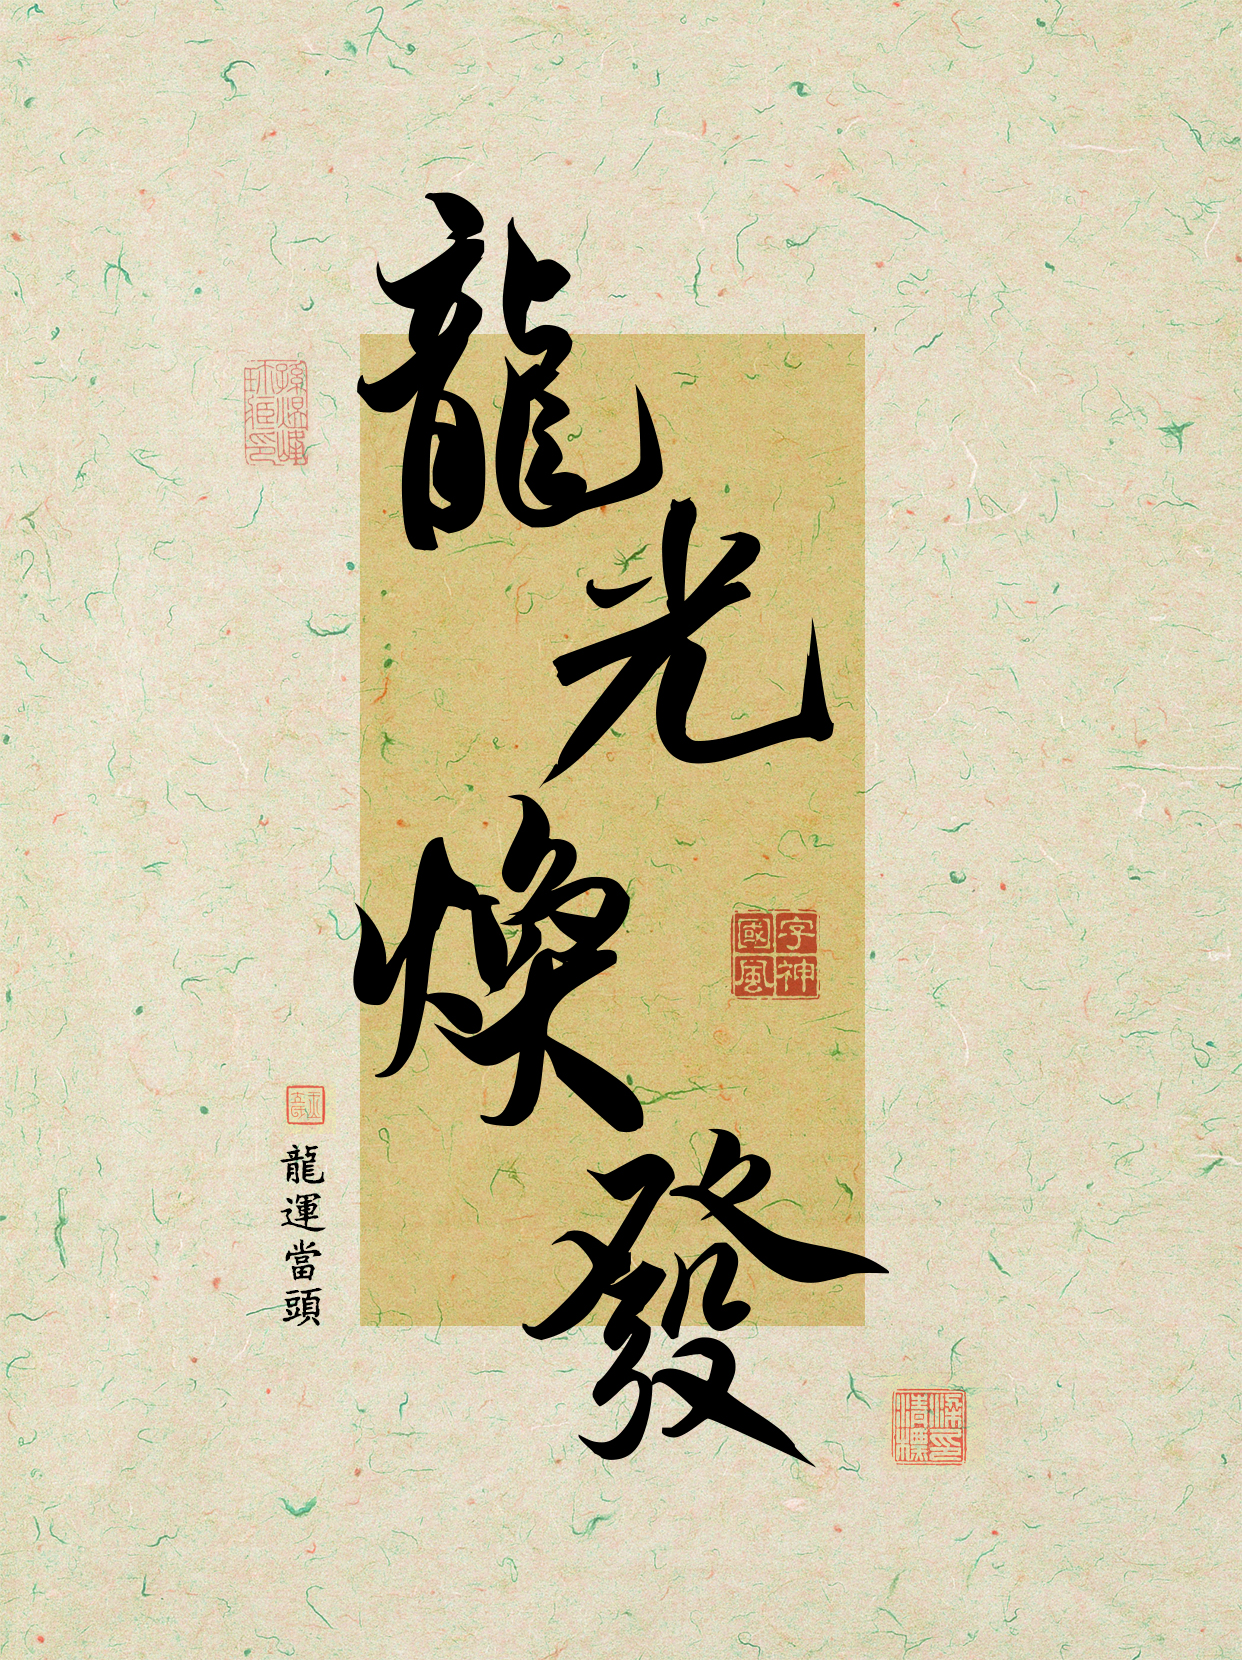 龍光煥發
字神國風
龍運當頭